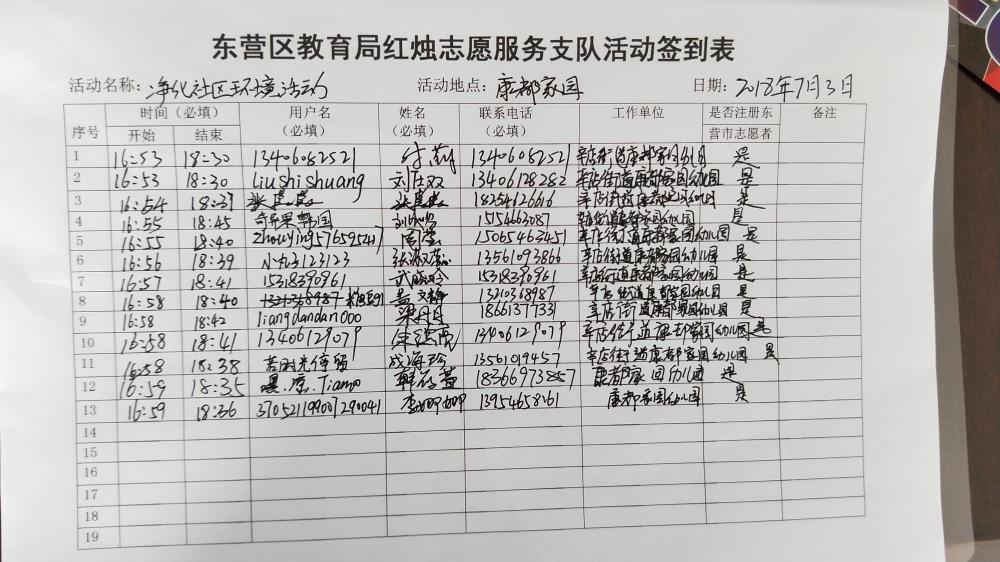 东营区教育局红烛志愿服务支队活动签到表
活动名称: 净化社区环境活动 活动地点: 康都家园 日期: 2018年7月3日
序号 时间（必填） 用户名（必填） 姓名（必填） 联系电话（必填） 工作单位 是否注册东营市志愿者 备注
开始 结束
1 16:53 18:30 13406082521 13406082521 是
2 16:53 18:30 Liushishuang 刘仕双 13406128282 辛店街道康都家园幼儿园 是
3 16:54 18:37 18254626616 是
4 16:55 18:45 15154663087 是
5 16:55 18:40 15065463451 辛店街道康都家园幼儿园 是
6 16:56 18:39 小丸子123123 13561093866 辛店街道康都家园幼儿园 是
7 16:57 18:41 15318390961 15318390961 辛店街道康都家园幼儿园 是
8 16:58 18:40 13210368987 辛店街道康都家园幼儿园 是
9 16:58 18:42 liangdandan000 梁丹丹 18661377331 辛店街道康都家园幼儿园 是
10 16:58 18:41 13406129079 13406129079 辛店街道康都家园幼儿园 是
11 16:58 18:38 若时光停留 成海珍 13561019457 辛店街道康都家园幼儿园 是
12 16:59 18:35 18366973857 康都家园幼儿园 是
13 16:59 18:36 370521199007290041 李姗姗 康都家园幼儿园 是
14
15
16
17
18
19